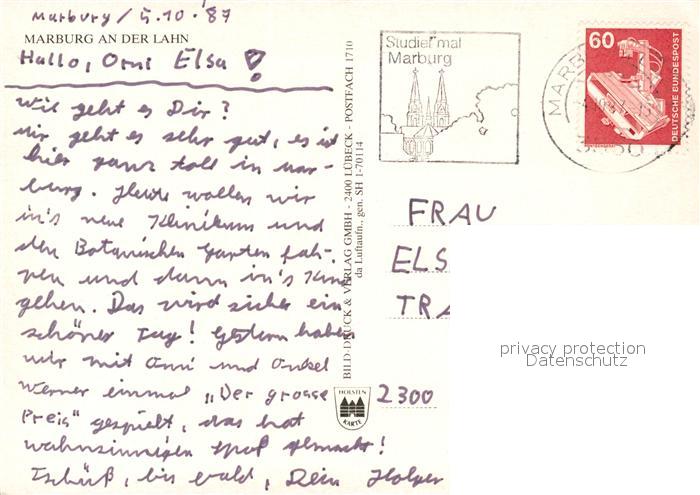 Marburg / 5.10.87
MARBURG AN DER LAHN
Hallo, Omi Elsa!
Wie geht es Dir?
Mir geht es sehr gut, es ist
hier ganz toll in Mar-
burg. Heute wollen wir
in's neue Klinikum und
den Botanischen Garten fah-
ren und dann in's Kino
gehen. Das wird sicher ein
schöner Tag! Gestern haben
wir mit Omi und Onkel
Werner einmal „Der grosse
Preis" gespielt, das hat
wahnsinnigen Spaß gemacht!
Tschüß, bis bald, Dein Holger
BILD-DRUCK & VERLAG GMBH - 2400 LÜBECK - POSTFACH 1710
da Luftaufn., gen. SH 1-70114
HOLSTEN
KARTE
Studier mal
Marburg
MARB
60
DEUTSCHE BUNDESPOST
FRAU
ELS
TRA
2300
privacy protection
Datenschutz